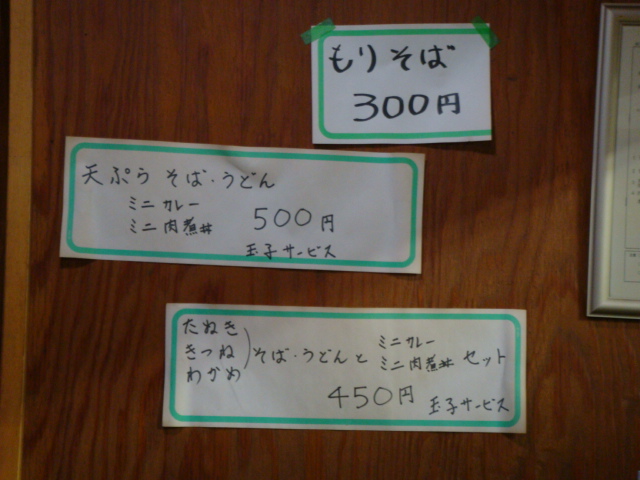 もりそば
300円
天ぷら そば・うどん
ミニ カレー
ミニ 肉煮丼 500円
玉子サービス
たぬき
きつね
わかめ
そば・うどんと
ミニ カレー
ミニ 肉煮丼 セット
450円 玉子サービス